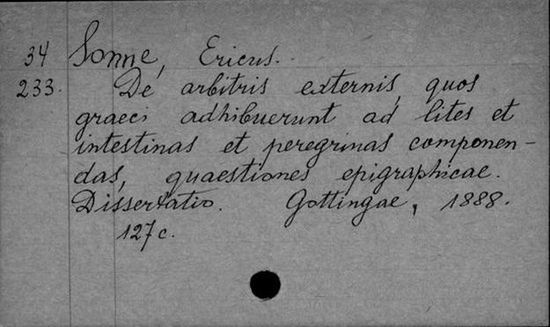 34 Sonne, Ericus.
233. De arbitris externis, quos
graeci adhibuerunt ad lites et
intestinas et peregrinas componen-
das, quaestiones epigraphicae.
Dissertatio. Gottingae, 1888.
127 c.